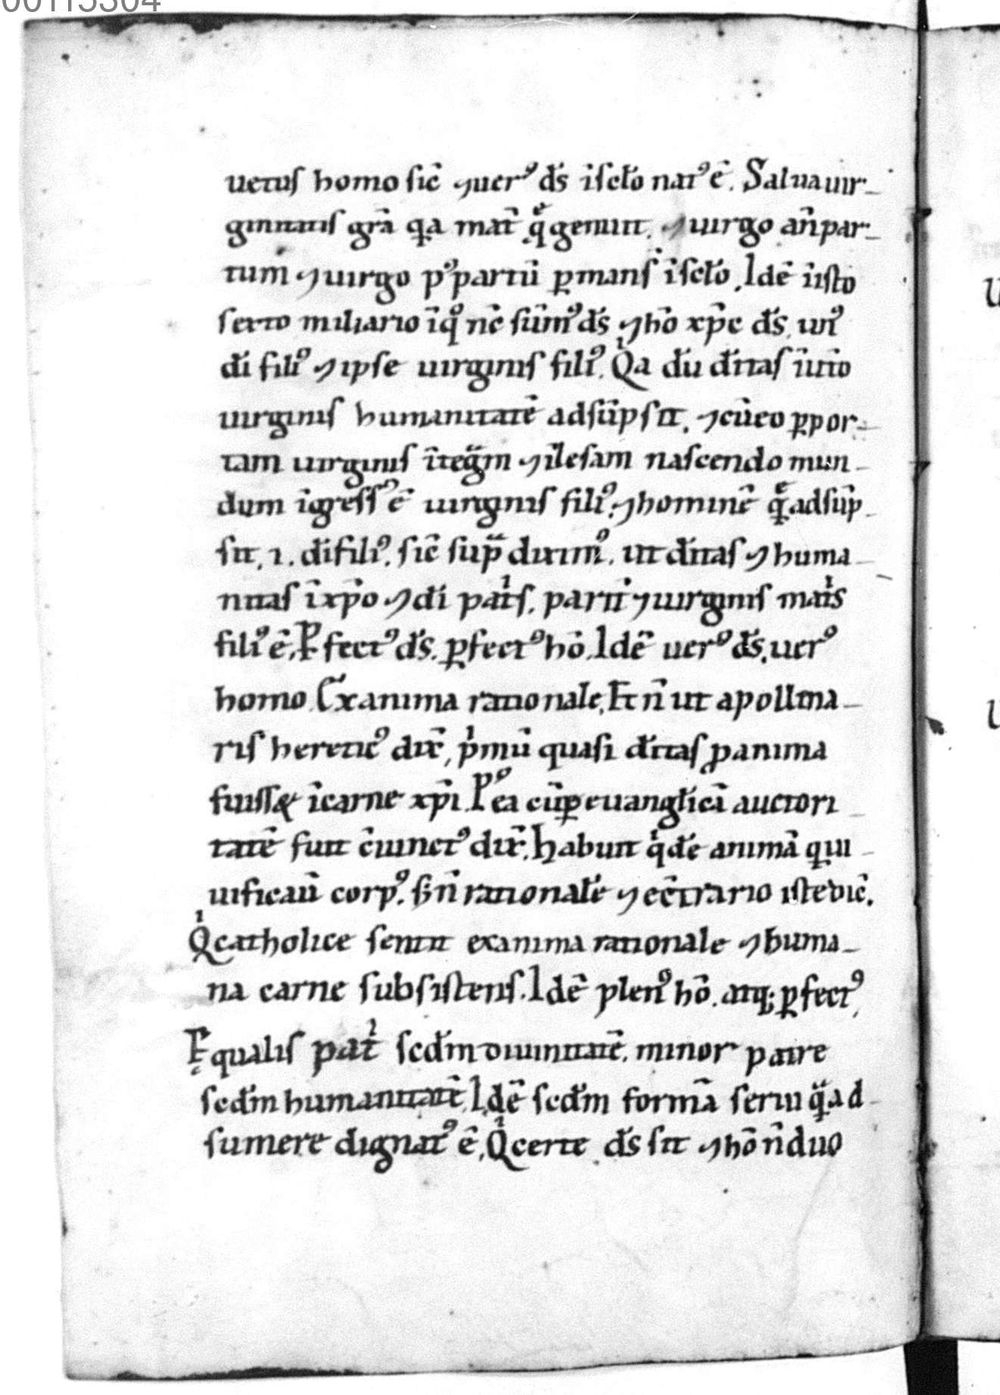 00115304
uetus homo sic̄ ⁊uerꝰ d̄s īsc̄lo natꝰ ē. Salua uir-
ginitatis gr̄a q̄a mat̄ q̄ genuit, ⁊ uirgo an̄ par-
tum ⁊ uirgo pꝰ partū ꝑmans̄ īsc̄lo. Idē īisto
sexto miliario īqͦ nc̄ sūmꝰ d̄s ⁊ hō xp̄c d̄s, unꝰ
dī filiꝰ ⁊ ipse uirginis filiꝰ. Qͥa dū dītas īut̄o
uirginis humanitatē adsūpsit, ⁊ cū eo ꝑ por-
tam uirginis īteg̃m ⁊ ilesam nascendo mun-
dum īgressꝰ ē uirginis filiꝰ, ⁊ hominē q̄ adsūp-
sit, .i. dī filiꝰ, sic̄ sup̃ diximꝰ, ut dītas ⁊ huma-
nitas īxp̄o ⁊ dī pat̄s, parit̄ ⁊ uirginis mat̄s
filiꝰ ē, Ꝑfectꝰ d̄s, ꝑfectꝰ hō, Idē uerꝰ d̄s, uerꝰ
homo. Ex anima rationale, Et n̄ ut apollina-
ris hereticꝰ dix̄, pͥmū quasi dītas ꝓ anima
fuiss& īcarne xp̄i. Pꝰea cū ꝑ euangl̄icā auctori-
tatē fuit c̄uinctꝰ dix̄, habuit qͥdē animā q̄ ui-
uificauī corpꝰ, s; n̄ rationalē ⁊ ec̄trario iste dic̄,
Qͥ catholice sentit exanima rationale ⁊ huma-
na carne subsistens. Idē plenꝰ hō, atq; ꝑfectꝰ,
Equalis pat̄ scd̄m diuinitatē, minor patre
scd̄m humanitatē, Idē scd̄m formā serui q̃ ad-
sumere dignatꝰ ē, Qͥ certe d̄s sit ⁊ hō n̄ duo